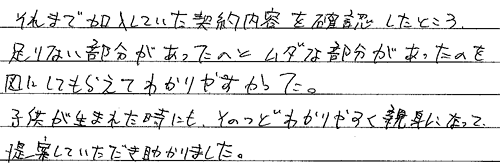 それまで加入していた契約内容を確認したところ、
足りない部分があったのと ムダな部分があったのを
図にしてもらえてわかりやすかった。
子供が生まれた時にも、そのつどわかりやすく親身になって、
提案していただき助かりました。